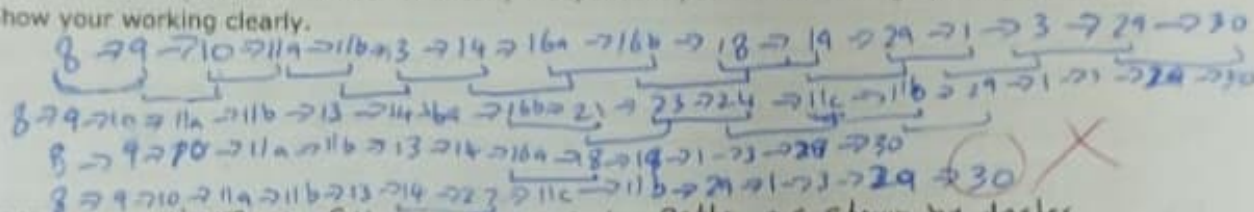 how your working clearly.
8 → 9 → 10 → 11a → 11b → 13 → 14 → 16a → 16b → 18 → 19 → 29 → 1 → 3 → 29 → 30
8 → 9 → 10 → 11a → 11b → 13 → 14 → 16a → 16b → 23 → 23 → 24 → 11c → 11b → 29 → 1 → 3 → 29 → 30
8 → 9 → 10 → 11a → 11b → 13 → 14 → 16a → 18 → 19 → 1 → 3 → 29 → 30
8 → 9 → 10 → 11a → 11b → 13 → 14 → 22 → 11c → 11b → 29 → 1 → 3 → 29 → 30